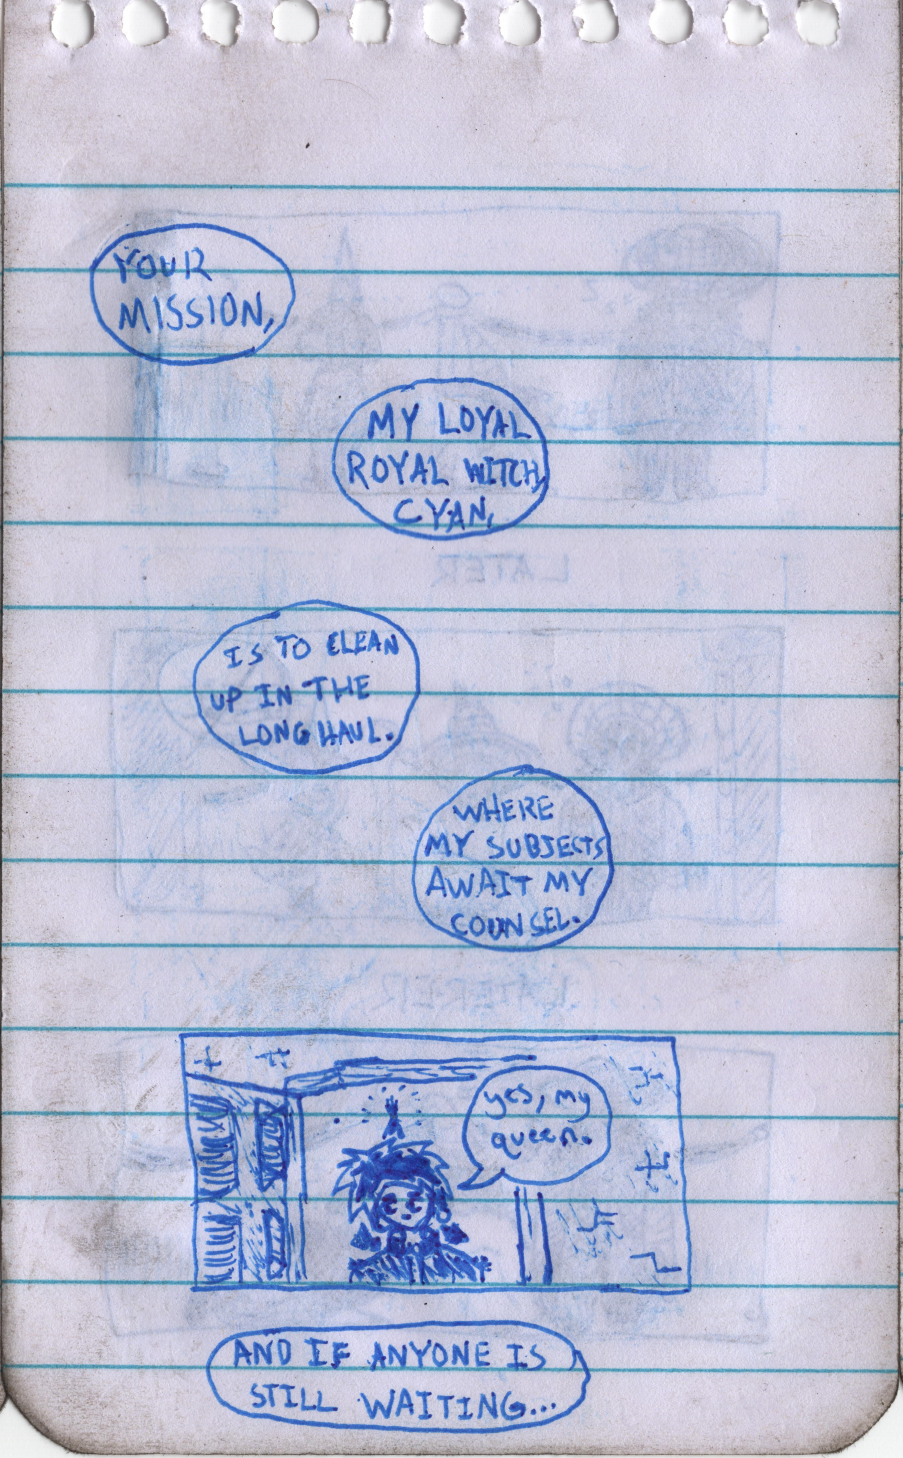 YOUR
MISSION,
MY LOYAL
ROYAL WITCH,
CYAN,
IS TO CLEAN
UP IN THE
LONG HAUL.
WHERE
MY SUBJECTS
AWAIT MY
COUNSEL.
yes, my
queen.
AND IF ANYONE IS
STILL WAITING...
LATER
LATERER